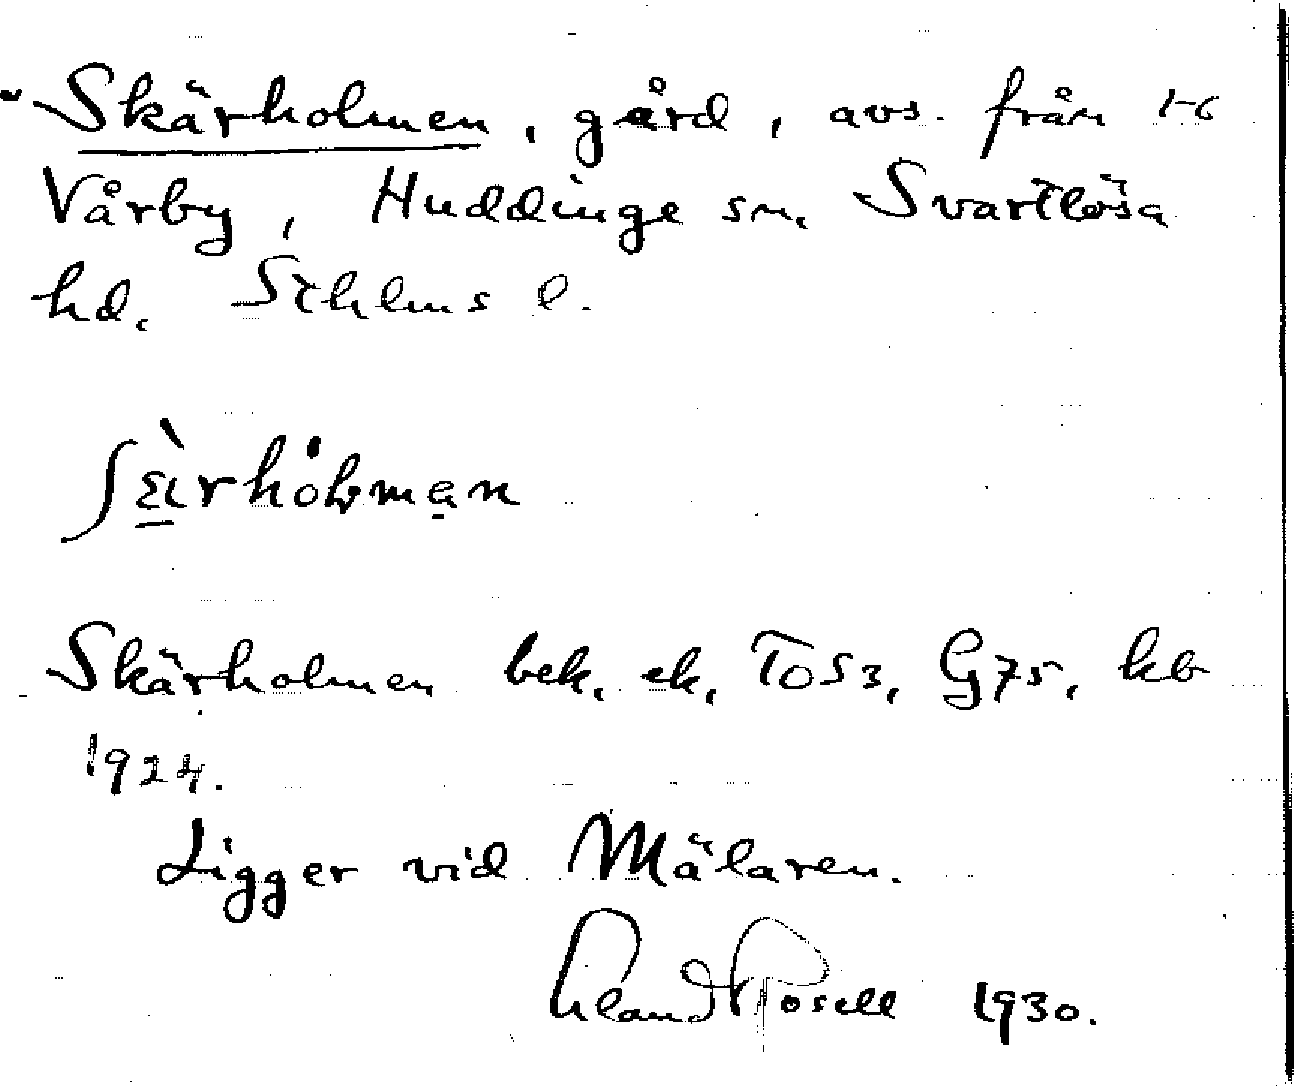 Skärholmen, gård, avs. från 1-6
Vårby, Huddinge sn, Svartlösa
hd. Sthlms l.
Skärholmen bek. ek. To53, G75, kb
1924.
Ligger vid Mälaren.
Erland Rosell 1930.